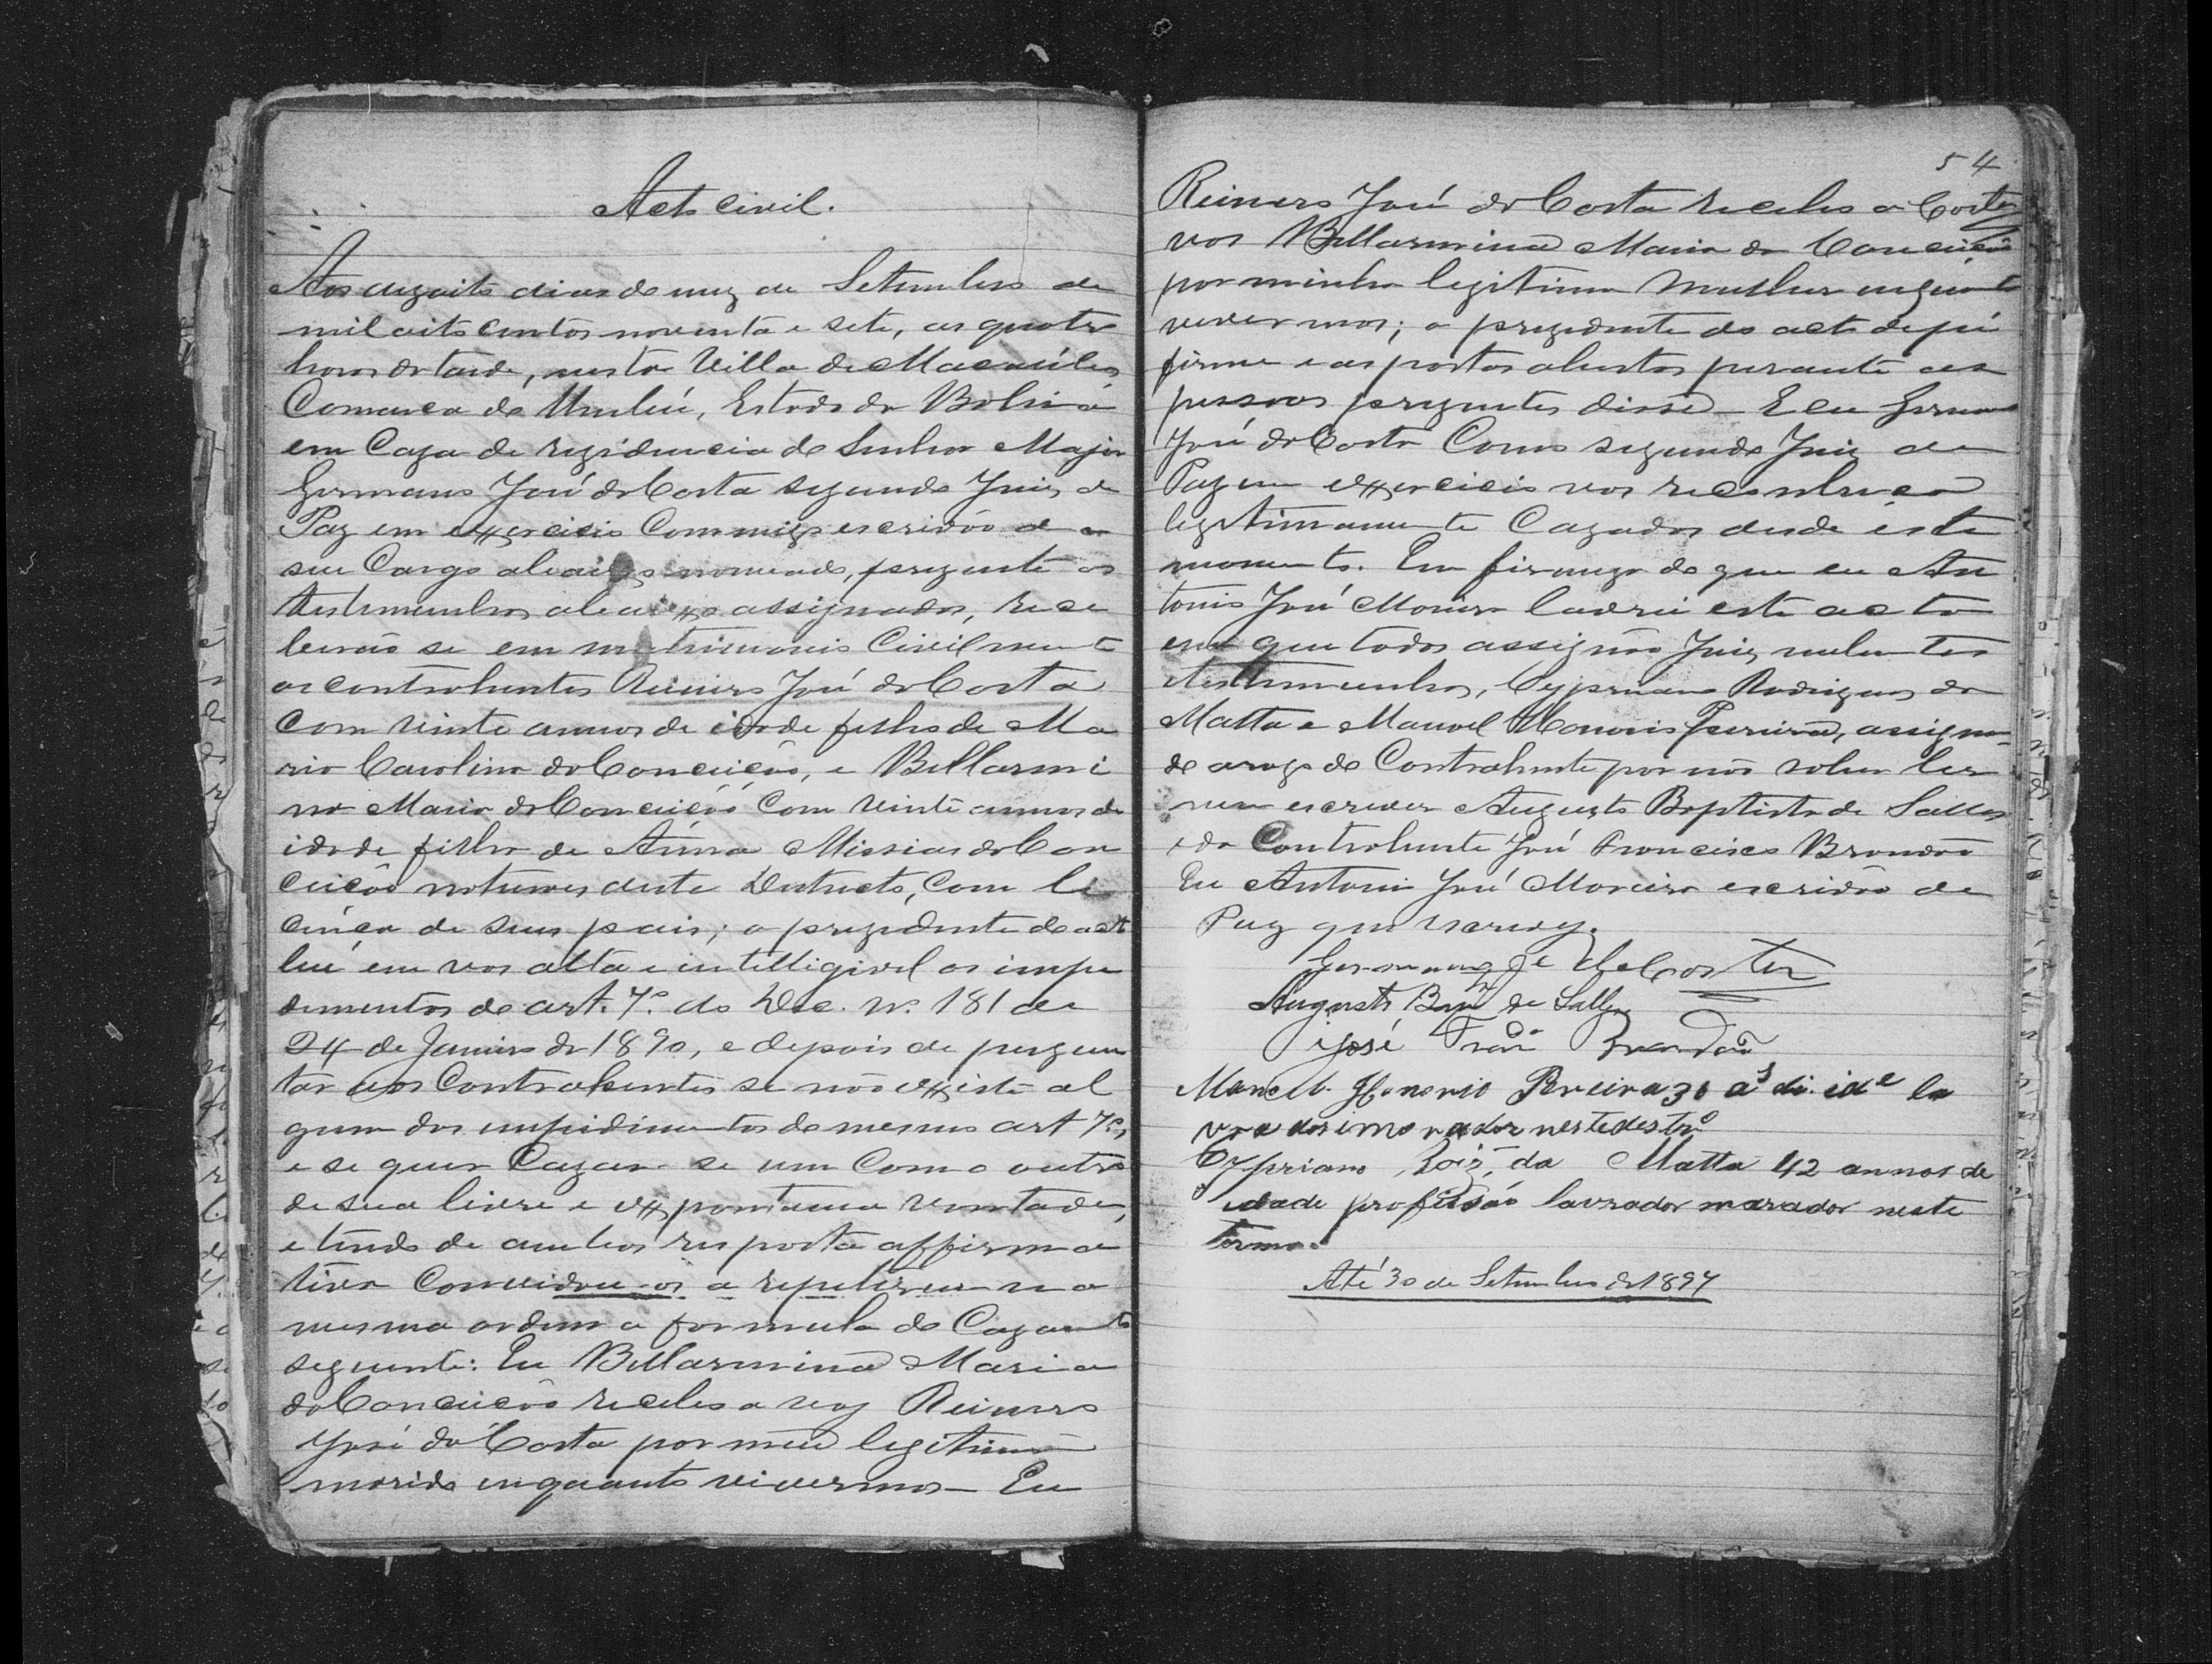 Acto civil.
Aos dezoito dias do mez de Setembro de
mil oito centos noventa e sete, as quatro
horas da tarde, nesta Villa de Macaúbas
Comarca de Urubú, Estado da Bahia
em Caza de rezidencia do Senhor Major
Germano José da Costa segundo Juiz de
Paz em exercicio Commigo escrivão de
seu Cargo abaixo nomeado, prezente as
testemunhas abaixo assignadas, rece
berão se em matrimonio Civilmente
os contrahentes Reinero José da Costa
com vinte annos de idade filho de Ma
ria Carolina da Conceição, e Bellarmi
na Maria da Conceição Com vinte annos de
idade filha de Anna Messias da Con
ceição naturaes deste Destricto, Com li
cença de seus pais; o prezidente do acto
leu em vos alta e intelligivel os impe
dimentos do art. 7º. do Dec. nº. 181 de
24 de Janeiro de 1890, e depois de pergun
tar aos Contrahentes se não existe al
gum dos impidimentos do mesmo art 7º,
e se quer Cazar-se um Com o outro
de sua livre e expontanea vontade,
e tendo de ambos resposta affirma
tiva Convidou-os a repetirem na
mesma ordem a formula do Cazamto
seguinte: Eu Bellarmina Maria
da Conceição recebo a vos Reinero
José da Costa por meu legitimo
marido enquanto vivermos - Eu
54
Reinero José da Costa recebo a
vos Bellarmina Maria da Conceição
por minha legitima mulher enquanto
vivermos; o prezidente do acto de pé
firme e as portas abertas perante as
pessoas prezentes disse - E eu Germano
José da Costa Como segundo Juiz de
Paz em exercicio vos reconheço
legitimamente Cazados desde este
momento. Em firmeza do que eu An
tonio José Moreira lavrei este acto
em que todos assignão Juiz
testemunhas, Cypriano Rodrigues da
Matta e Manoel Honorio Pereira, assignan
do a rogo do Contrahente por não saber ler
nem escrever Augusto Baptista de Salles
e da Contrahente José Francisco Brandão
Eu Antonio José Moreira escrivão de
Paz que escrevy.
Germano Je da Costa
Augusto Bapta de Salles
José Franco Brandão
Manoel Honorio Pereira 30 as di ide la
vradori morador nestedestro
Cypriano Roiz da Matta 42 annos de
idade profissão lavrador morador neste
termo.
Até 30 de Setembro de 1897